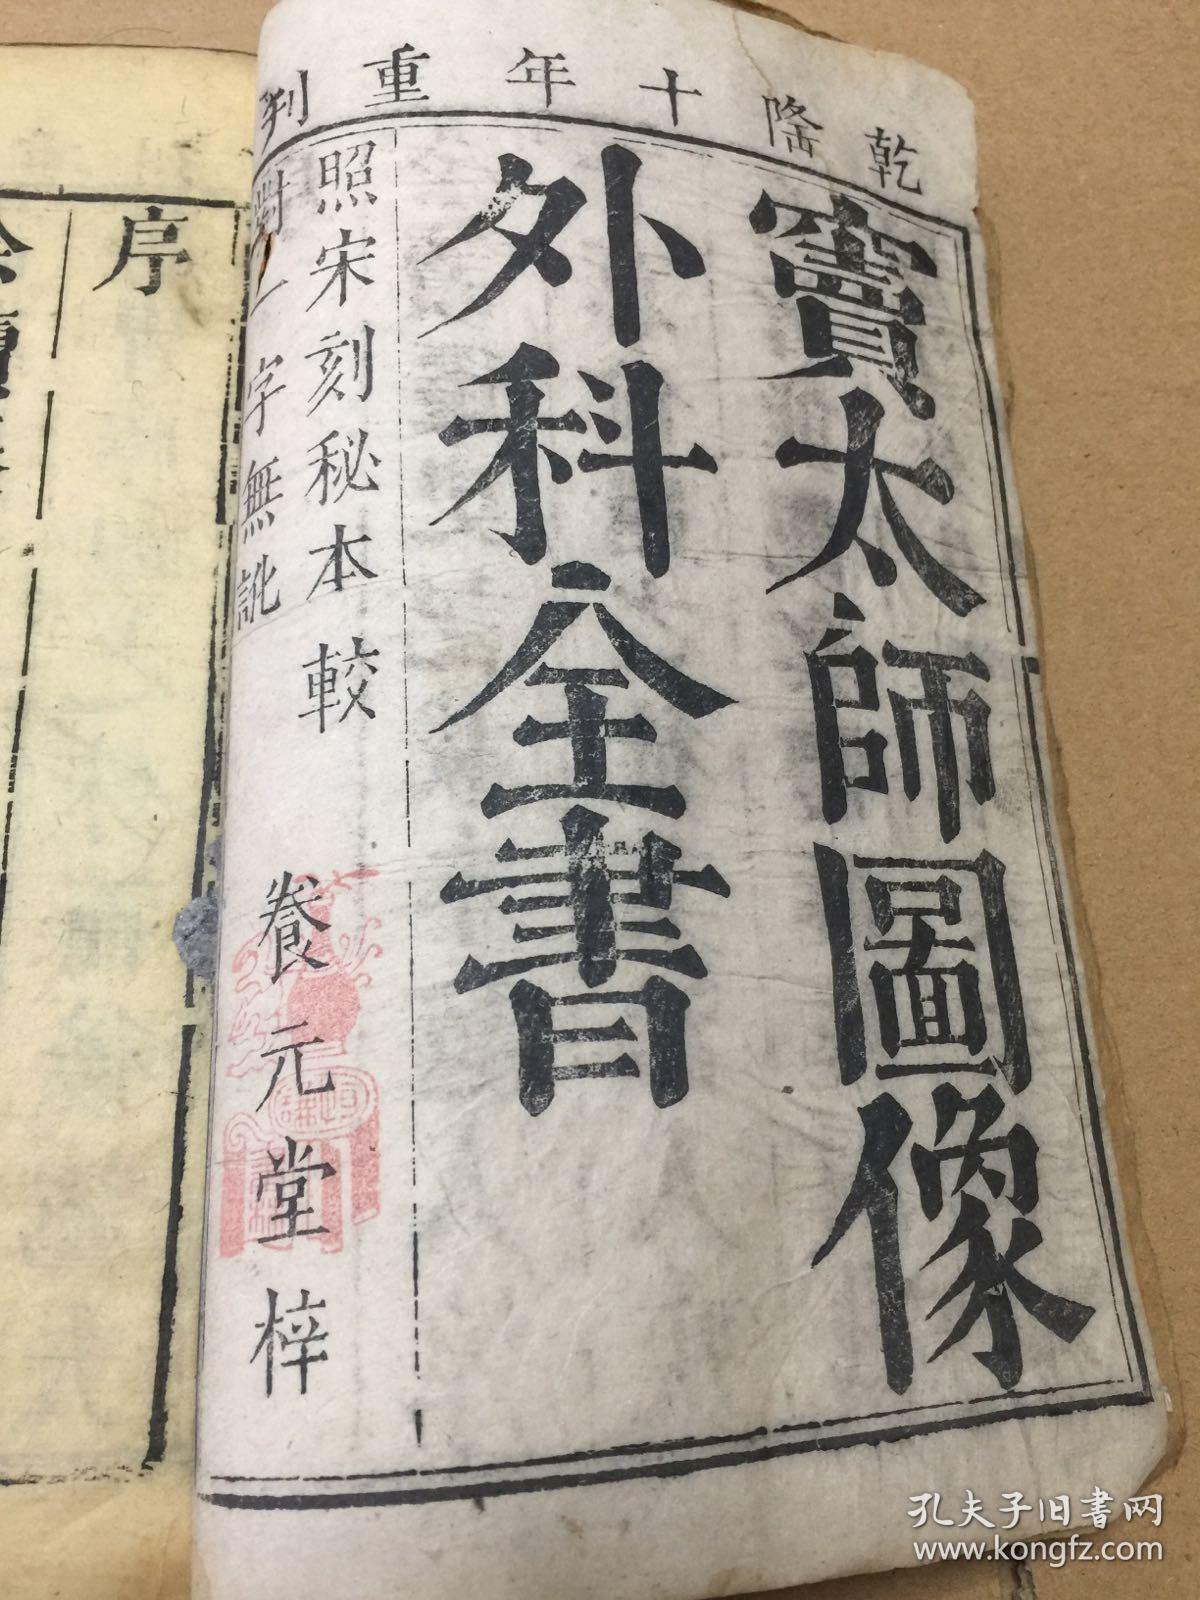 乾隆十年重刊
竇太師圖像
外科全書
照宋刻秘本較
對一字無訛
養元堂梓
序
孔夫子旧书网
www.kongfz.com